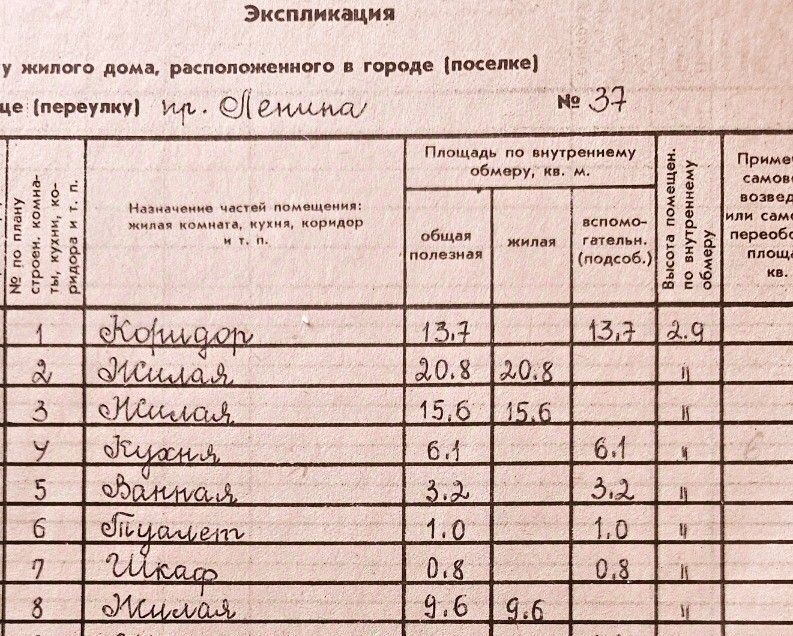 Экспликация
у жилого дома, расположенного в городе (поселке)
це (переулку) пр. Ленина № 37
№ по плану строен. комна-ты, кухни, ко-ридора и т. п.
Назначение частей помещения:
жилая комната, кухня, коридор
и т. п.
Площадь по внутреннему
обмеру, кв. м.
общая
полезная
жилая
вспомо-
гательн.
(подсоб.)
Высота помещен.
по внутреннему
обмеру
Приме
самов
возвед
или само
переобо
площа
кв.
1 Коридор 13,7 13,7 2.9
2 Жилая 20.8 20.8 "
3 Жилая 15,6 15,6 "
4 Кухня 6.1 6.1 "
5 Ванная 3.2 3.2 "
6 Туалет 1.0 1.0 "
7 Шкаф 0.8 0.8 "
8 Жилая 9.6 9.6 "